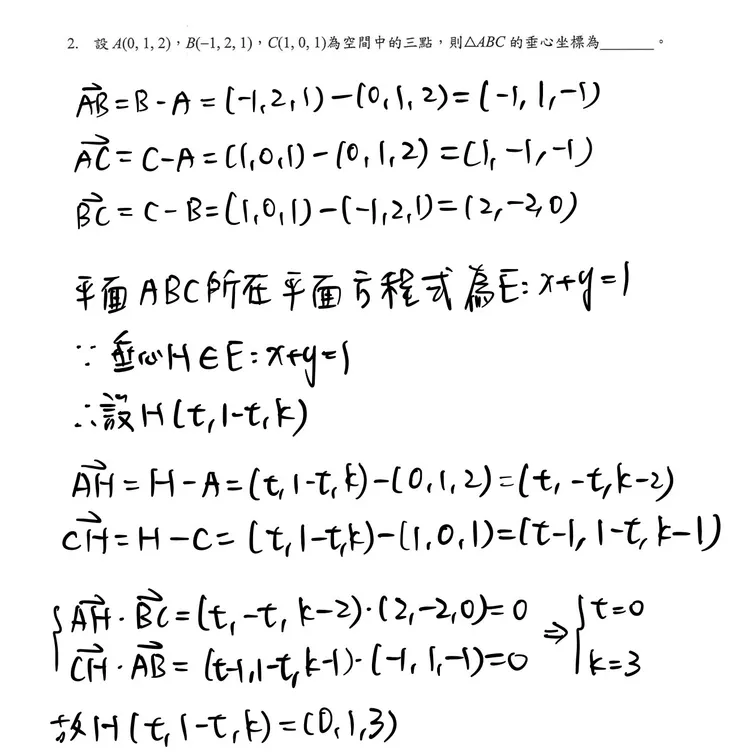 2. 設 A(0, 1, 2),B(−1, 2, 1),C(1, 0, 1)為空間中的三點,則△ABC 的垂心坐標為______。
AB⃗ = B - A = (-1,2,1) - (0,1,2) = (-1, 1, -1)
AC⃗ = C - A = (1,0,1) - (0,1,2) = (1, -1, -1)
BC⃗ = C - B = (1,0,1) - (-1,2,1) = (2, -2, 0)
平面ABC所在平面方程式為E: x+y=1
∵ 垂心H∈E: x+y=1
∴ 設H(t, 1-t, k)
AH⃗ = H - A = (t, 1-t, k) - (0,1,2) = (t, -t, k-2)
CH⃗ = H - C = (t, 1-t, k) - (1,0,1) = (t-1, 1-t, k-1)
{ AH⃗ · BC⃗ = (t, -t, k-2) · (2, -2, 0) = 0 ⇒ { t=0
CH⃗ · AB⃗ = (t-1, 1-t, k-1) · (-1, 1, -1) = 0 k=3
故H(t, 1-t, k) = (0, 1, 3)